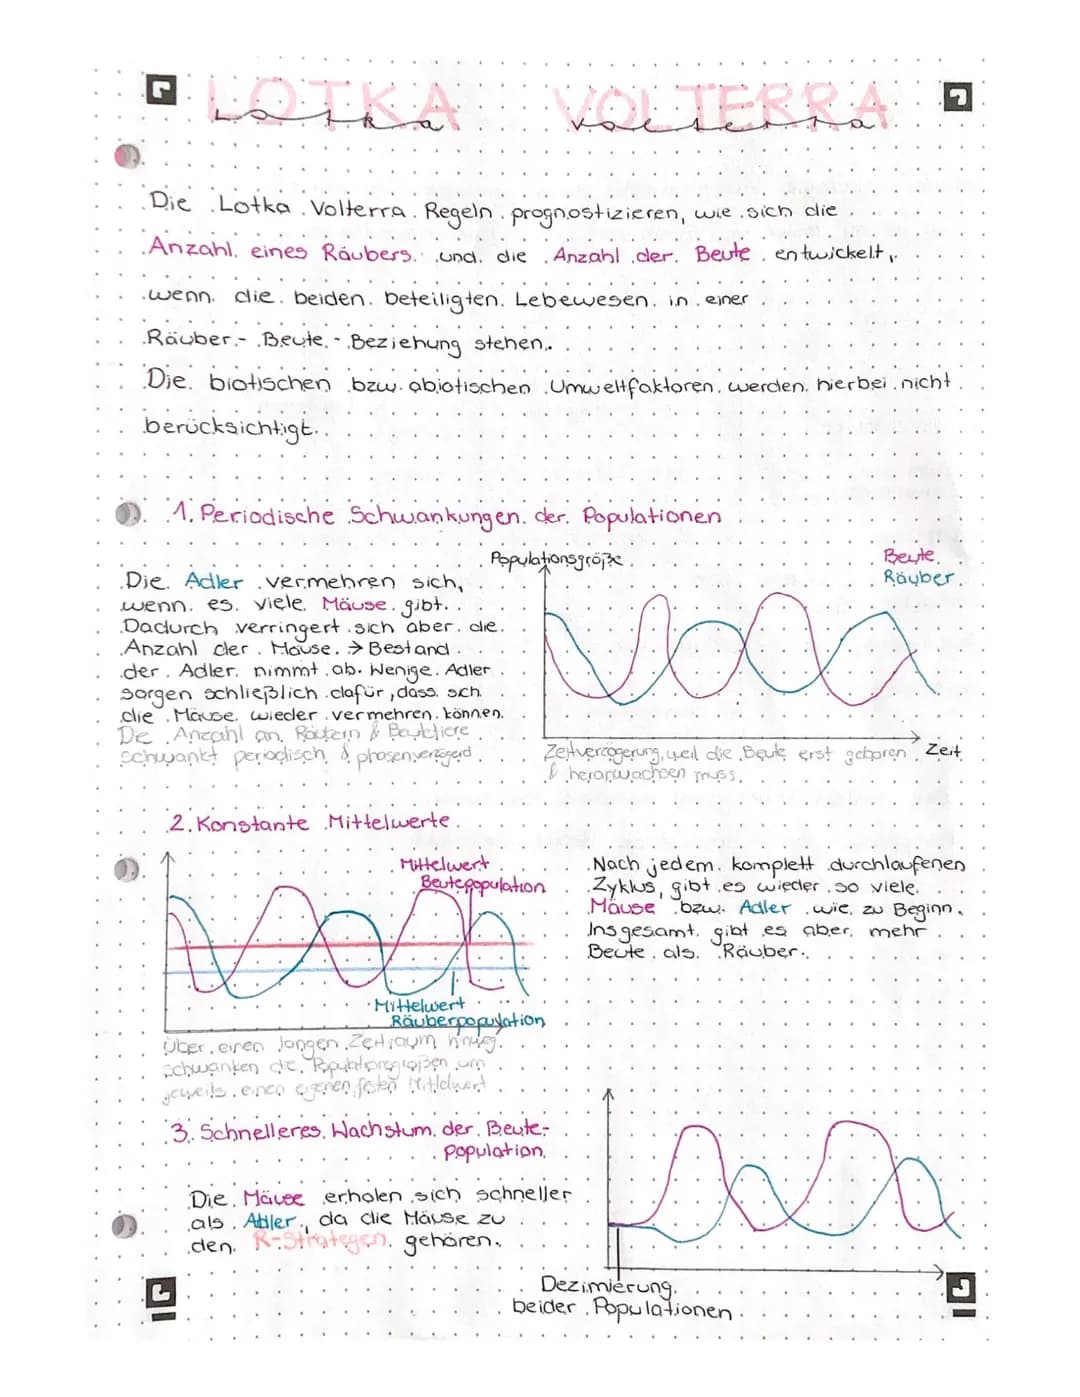 LOTKA VOLTERRA
Lotka Volterra
Die Lotka Volterra Regeln prognostizieren, wie sich die
Anzahl eines Räubers und die Anzahl der Beute entwickelt,
wenn die beiden beteiligten Lebewesen in einer
Räuber-Beute-Beziehung stehen.
Die biotischen bzw. abiotischen Umweltfaktoren werden hierbei nicht
berücksichtigt.
1. Periodische Schwankungen der Populationen
Die Adler vermehren sich,
wenn es viele Mäuse gibt.
Dadurch verringert sich aber die
Anzahl der Mäuse. → Bestand
der Adler nimmt ab. Wenige Adler
sorgen schließlich dafür, dass sich
die Mäuse wieder vermehren können.
Die Anzahl an Räubern & Beutetiere
schwankt periodisch & phasenverzögerd.
Populationsgröße
Beute
Räuber
Zeit
Zeitverzögerung, weil die Beute erst geboren
& heranwachsen muss.
2. Konstante Mittelwerte
Mittelwert
Beutepopulation
Mittelwert
Räuberpopulation
Nach jedem komplett durchlaufenen
Zyklus, gibt es wieder so viele
Mäuse bzw. Adler wie zu Beginn.
Insgesamt gibt es aber mehr
Beute als Räuber.
Über einen langen Zeitraum hinweg
schwanken die Populationsgrößen um
jeweils einen eigenen festen Mittelwert
3. Schnelleres Wachstum der Beute-
population
Die Mäuse erholen sich schneller
als Adler, da die Mäuse zu
den R-Strategen gehören.
Dezimierung
beider Populationen